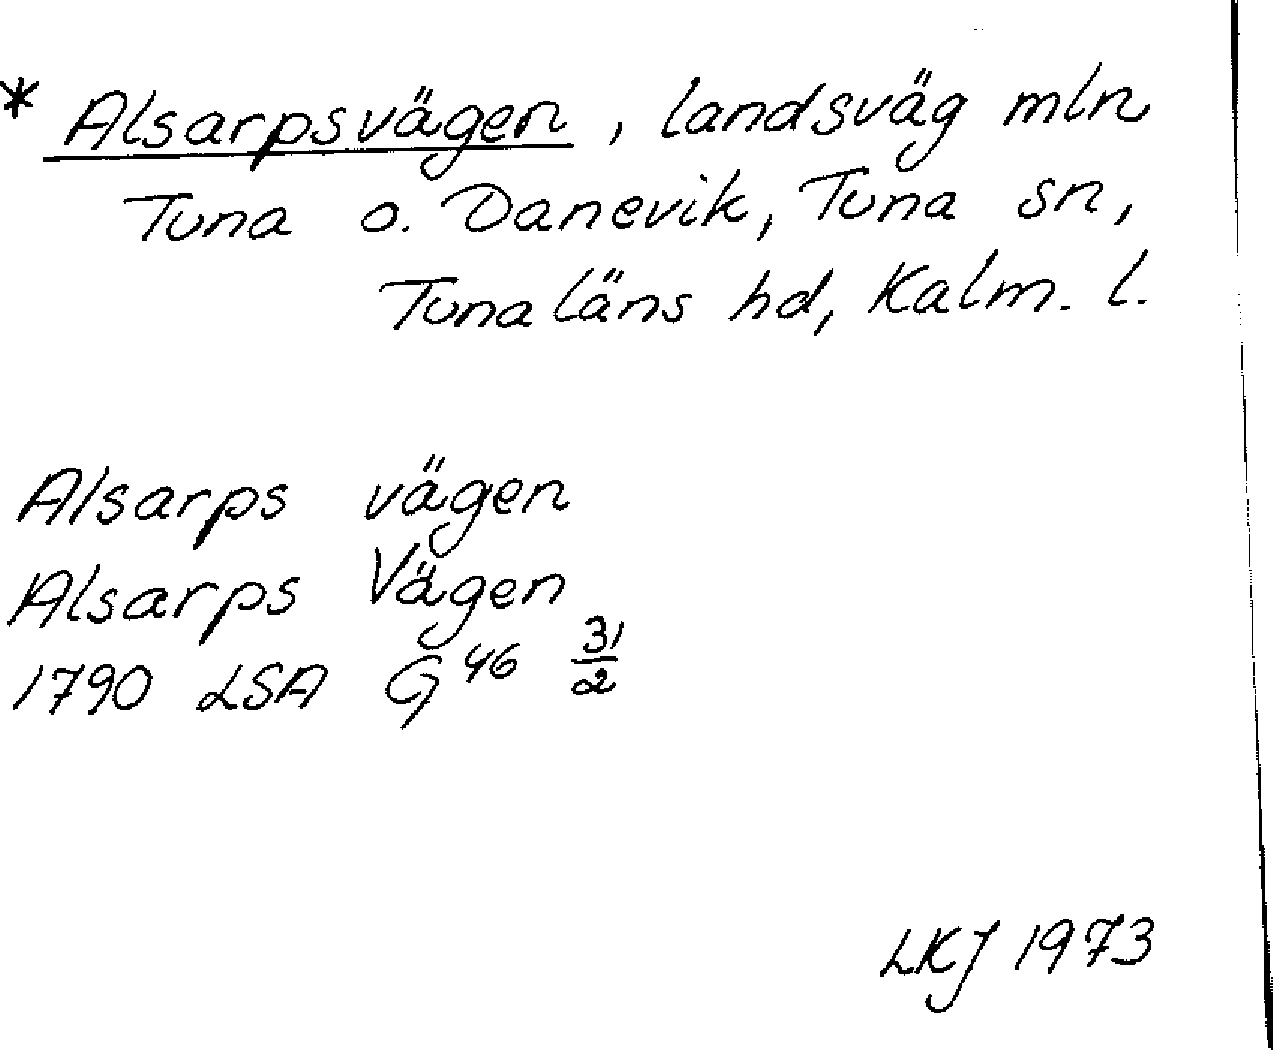 * Alsarpsvägen, landsväg mln
Tuna o. Danevik, Tuna sn,
Tunaläns hd, Kalm. l.
Alsarps vägen
Alsarps Vägen
1790 LSA G 46 31/2
LKJ 1973